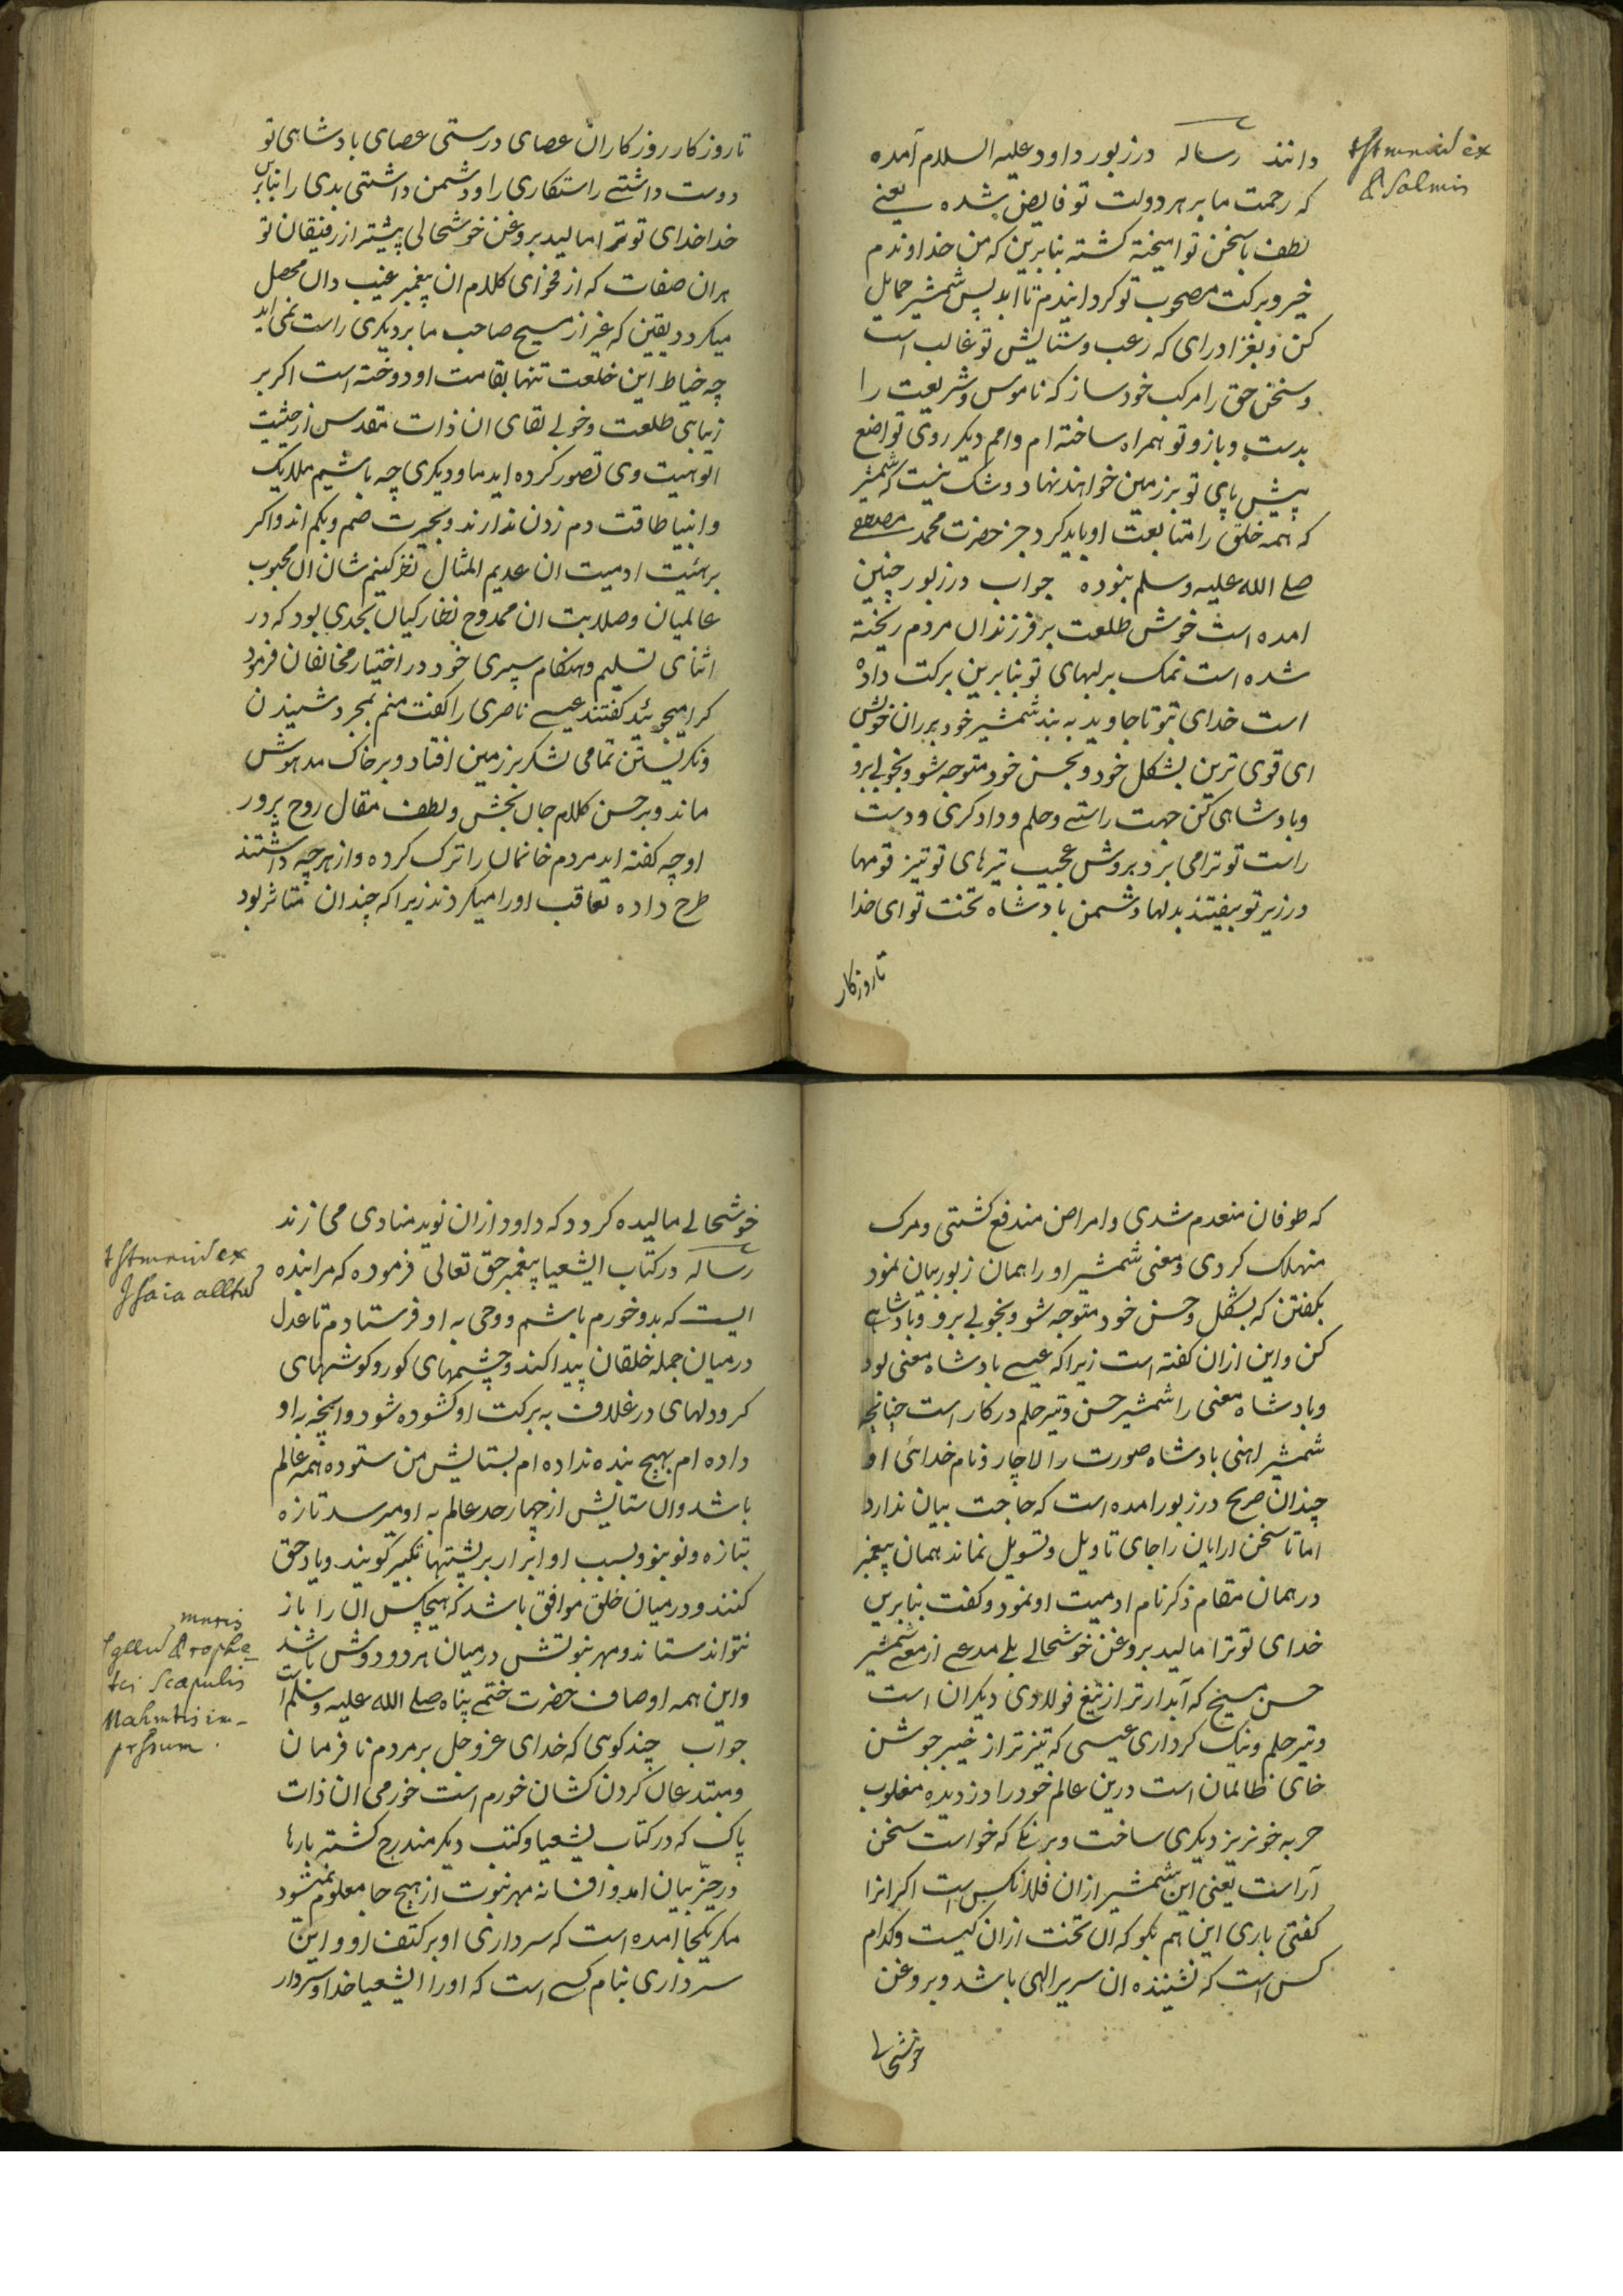 دانند رساله درزبور داود علیه السلام آمده
که رحمت ما بر هر دولت تو فایض شده یعنے
لطف با سخن تو امیخته کشته بنابرین که من خداوندم
خیر و برکت مصحوب تو کردایندم تا ابد پس شمشیر حمایل
کن و بغزا درای که رعب و ستایش تو غالب است
و سخن حق را مرکب خود ساز که ناموس و شریعت را
بدست و بازو تو همراه ساخته ام و امم دیکر روی تواضع
پیش پای تو بر زمین خواهند نهاد و شک نیست که شمشیر
که همه خلق را متابعت او باید کرد جز حضرت محمد مصطفے
صلے الله علیه وسلم نبوده جواب درزبور چنین
امده است خوش طلعت بر فرزندان مردم ریخته
شده است نمک بر لبهای تو بنابرین برکت داده
است خدای بتو تا جاوید به بند شمشیر خود بر ران خویش
ای قوی ترین بشکل خود و بحسن خود متوجه شو و بخوبے برو
و بادشاهی کن جهت راستے و حلم و دادکری و دست
راست تو ترا می برد بروش عجیب تیرهای تو تیز قومها
درزیر تو بیفتند بدلها دشمن بادشاه تخت تو ای خدا
تا روزکار
testimonium ex
Psalmis
تا روزکار روزکاران عصای درستی عصای بادشاهی تو
دوست داشتے راستکاری را و دشمن داشتی بدی را بنابرین
خدا خدای تو ترا مالید بروغن خوشحالی پیشتر از رفیقان تو
هر ان صفات که از فحوای کلام ان پیغمبر غیب دان محصل
میکردد یقین که غیر از مسیح صاحب ما بر دیکری راست نمی اید
چه خیاط این خلعت تنها بقامت او دوخته است اکر بر
زیبایی طلعت و خوبے لقای ان ذات مقدس از حیثیت
الوهیت وی تصور کرده اید ما و دیکری چه باشیم ملایک
و انبیا طاقت دم زدن ندارند و بحیرت صم و بکم اند و اکر
بر هئیت ادمیت ان عدیم المثال نظر کنیم شان ان محبوب
عالمیان و صلابت ان ممدوح نظارکیان بحدی بود که در
اثنای تسلیم و هنکام سپری خود در اختیار مخالفان فرمود
کرا میجوئید کفتند عیسے ناصری را کفت منم بمجرد شنیدن
و نکریستن تمامی لشکر بر زمین افتاد و بر خاک مدهوش
ماند و بر حسن کلام جان بخش و لطف مقال روح پرور
او چه کفته اید مردم خانمان را ترک کرده و از هر چه داشتند
طرح داده تعاقب او را میکردند زیرا که چندان متاثر بود
که طوفان منعدم شدی و امراض مندفع کشتی و مرک
منهلک کردی و معنی شمشیر او را همان زبور بیان نمود
بکفتن که بشکل و حسن خود متوجه شو و بخوبے برو و بادشاهے
کن و این ازان کفته است زیرا که عیسے بادشاه معنی بود
و بادشاه معنی را شمشیر حسن و تیر حلم درکار است چنانچه
شمشیر اهنی بادشاه صورت را لاچار و نام خدائی او
چندان صریح درزبور امده است که حاجت بیان ندارد
اما تا سخن ارایان را جای تاویل و تسویل نماند همان پیغمبر
در همان مقام ذکر نام ادمیت او نمود و کفت بنابرین
خدای تو ترا مالید بروغن خوشحالے بلے مدعے از معنے شمشیر
حسن مسیح که آبدارتر از تیغ فولادی دیکران است
و تیر حلم و نیک کرداری عیسی که تیزتر از خنجر جوشن
خای ظالمان است درین عالم خود را دزدیده مغلوب
حربه خونریز دیکری ساخت و برنکے که خواست سخن
آراست یعنی این شمشیر ازان فلانکس است اکر انرا
کفتی باری این هم بکو که ان تخت ازان کیست و کدام
کس است که نشیننده ان سریر الهی باشد و بروغن
خوشحالے
خوشحالے مالیده کردد که داود ازان نوید منادی می زند
رساله درکتاب الشعیا پیغمبر حق تعالی فرموده که مرا بنده
ایست که بدو خورم باشم و وحی به او فرستادم تا عدل
درمیان جمله خلقان پیدا کند و چشمهای کور و کوشهای
کر و دلهای در غلاف به برکت او کشوده شود و انچه به او
داده ام بهیچ بنده نداده ام بستایش من ستوده همه عالم
باشد و ان ستایش از چهار حد عالم به او میرسد تازه
بتازه و نو بنو و بسبب او ابرار بر پشتیها تکبیر کویند و یاد حق
کنند و درمیان خلق موافق باشد که هیچکس ان را باز
نتواند ستاند و مهر نبوتش درمیان هر دو دوش باشد
و این همه اوصاف حضرت ختمے پناه صلے الله علیه وسلم است
جواب چند کوی که خدای عز و جل بر مردم نافرمان
و مبتدعان کردن کشان خورم است خورمی ان ذات
پاک که درکتاب یشعیا و کتب دیکر مندرج کشته بارها
در حیّز بیان امد و افسانه مهر نبوت از هیچ جا معلوم نمیشود
مکر یکجا امده است که سرداری او بر کتف او و این
سرداری بنام کسے است که او را الشعیا خدا و سردار
testimonium ex
Isaia allatum
Sigillum Prophe-
tei Scapulis
Mahmetis im-
pressum.